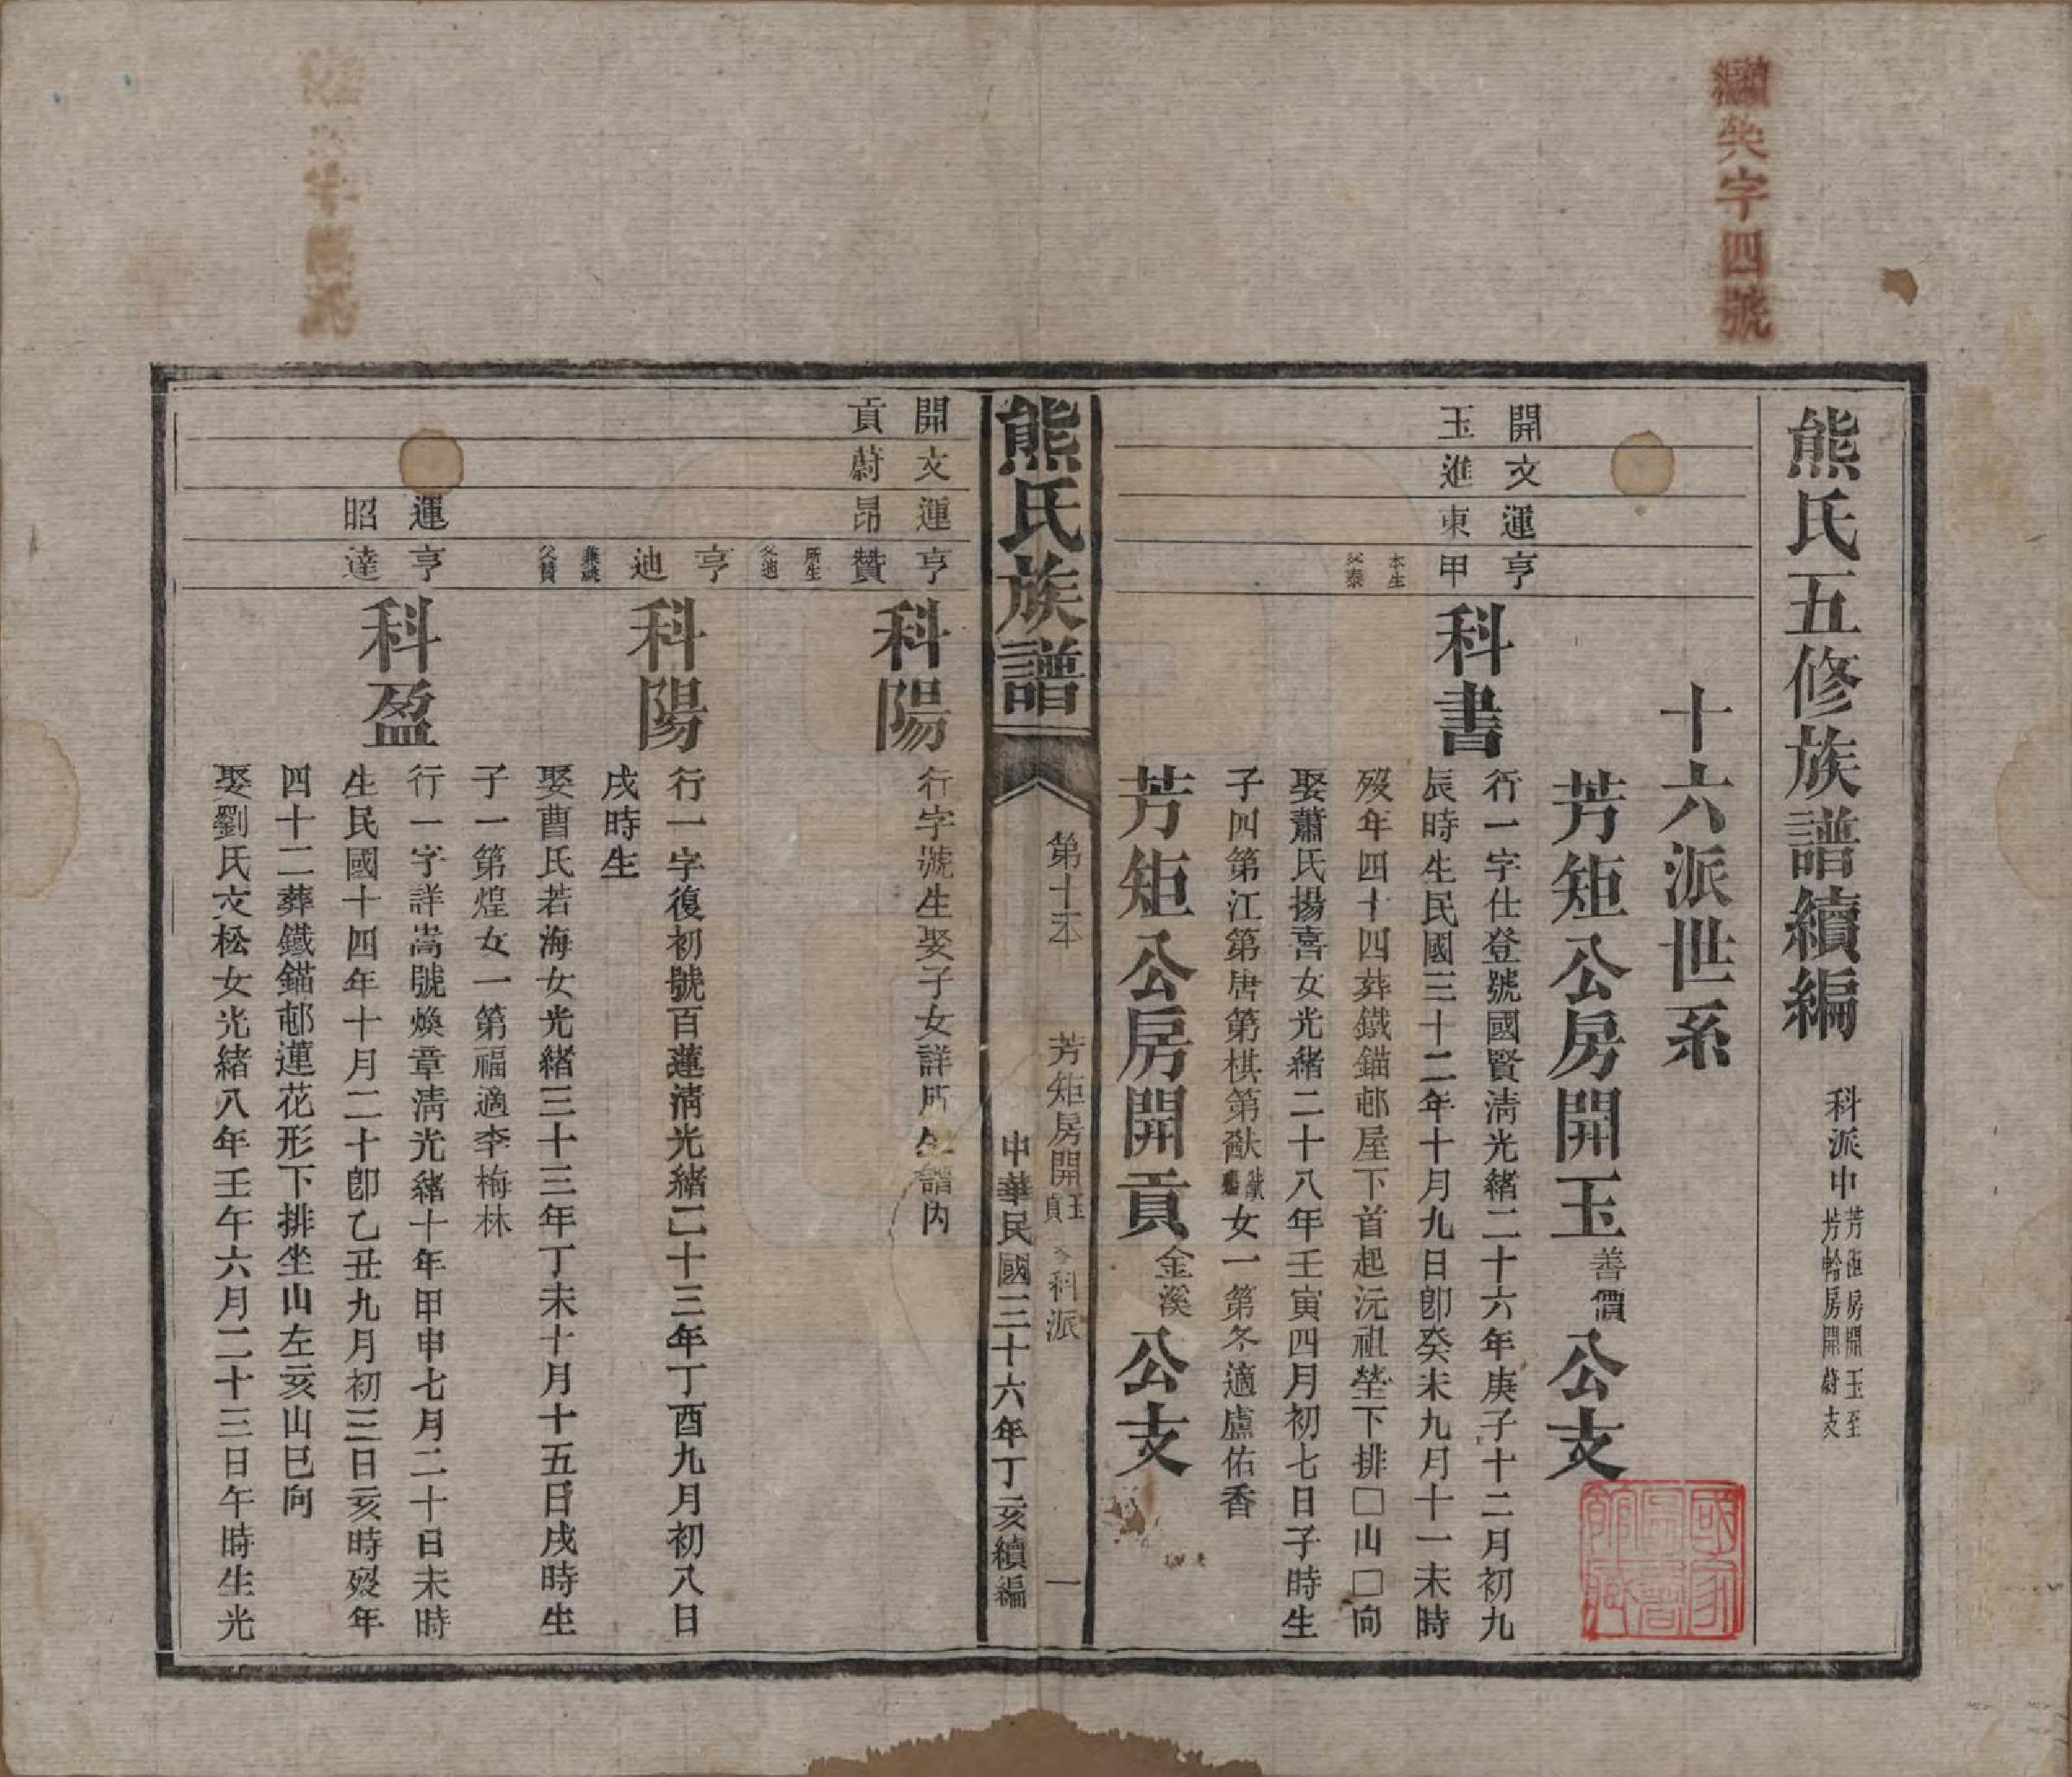 續英字四號
熊氏五修族譜續編
科派中
芳矩房開玉至
芳軫房開蔚支
十六派世系
芳矩公房開玉善價公支
開玉
文進
運東
亨甲
本生
父泰
科書
行一字仕登號國賢清光緒二十六年庚子十二月初九
辰時生民國三十二年十月九日卽癸未九月十一未時
歿年四十四葬鐵錨邨屋下首起沅祖塋下排□山□向
娶蕭氏揚喜女光緒二十八年壬寅四月初七日子時生
子四第江第唐第棋第猷
女一第冬適盧佑香
芳矩公房開貢金溪公支
熊氏族譜
第十本
芳矩房開玉貢
科派
一
中華民國三十六年丁亥續編
開貢
文蔚
運昂
亨贊
所生
父迪
科陽
行字號生娶子女詳所生譜內
亨迪
兼祧
父贊
科陽
行一字復初號百蓮清光緒二十三年丁酉九月初八日
戌時生
娶曹氏若海女光緒三十三年丁未十月十五日戌時生
子一第煌女一第福適李梅林
運昭
亨達
科盈
行一字詳嵩號煥章清光緒十年甲申七月二十日未時
生民國十四年十月二十卽乙丑九月初三日亥時歿年
四十二葬鐵錨邨蓮花形下排坐山左亥山巳向
娶劉氏文松女光緒八年壬午六月二十三日午時生光